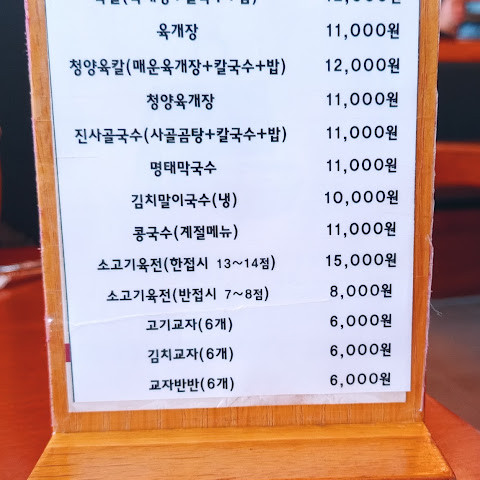 육개장 11,000원
청양육칼(매운육개장+칼국수+밥) 12,000원
청양육개장 11,000원
진사골국수(사골곰탕+칼국수+밥) 11,000원
명태막국수 11,000원
김치말이국수(냉) 10,000원
콩국수(계절메뉴) 11,000원
소고기육전(한접시 13~14점) 15,000원
소고기육전(반접시 7~8점) 8,000원
고기교자(6개) 6,000원
김치교자(6개) 6,000원
교자반반(6개) 6,000원